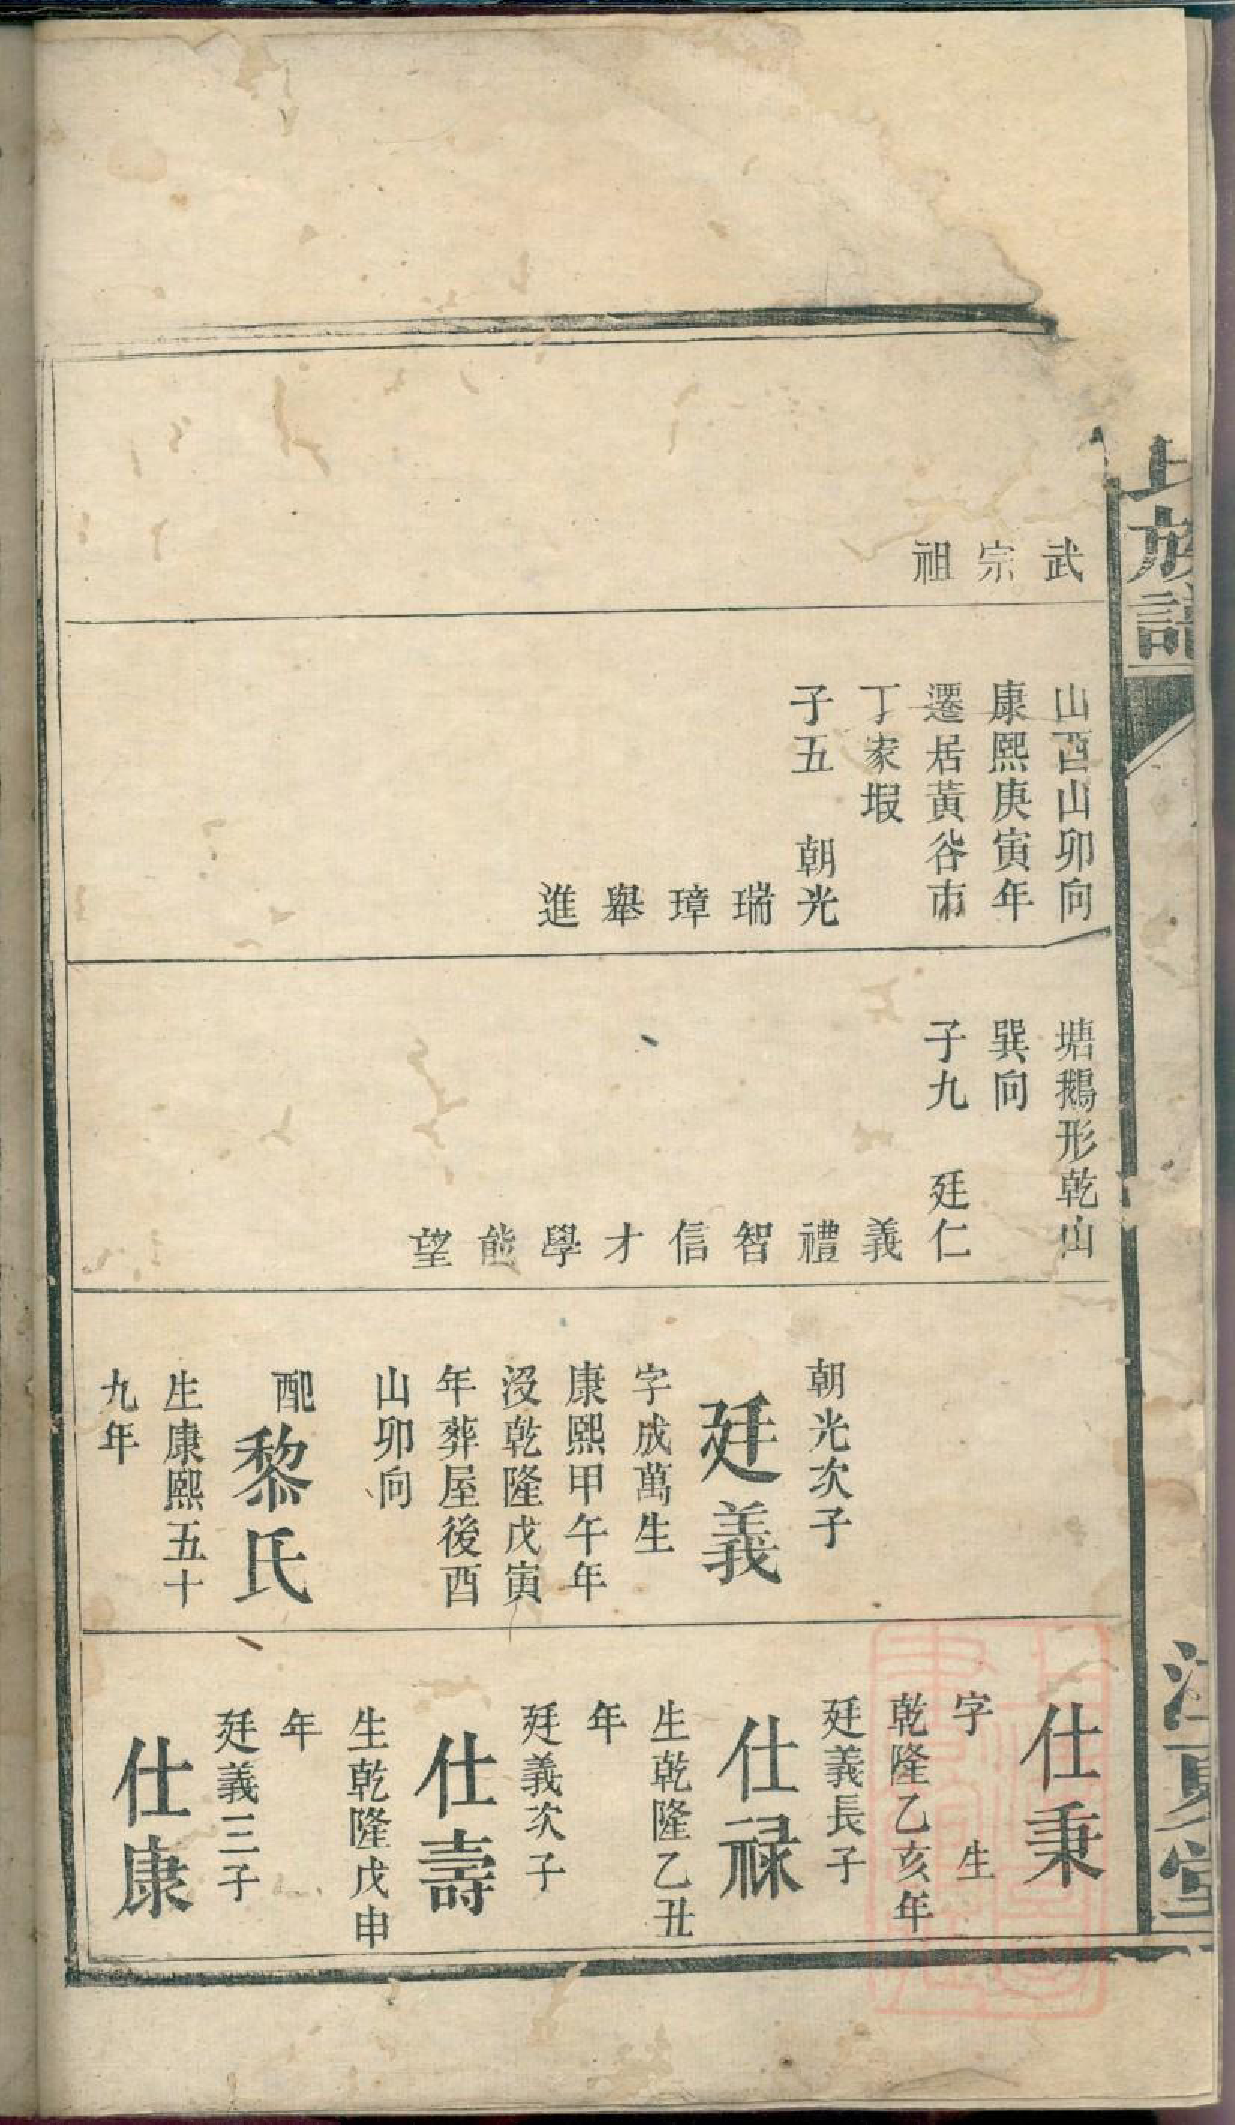 氏族譜
江夏堂
武
宗
祖
山酉山卯向
康熙庚寅年
遷居黃谷市
丁家塅
子五 朝光
瑞
璋
舉
進
塘鵝形乾山
巽向
子九 廷仁
義
禮
智
信
才
學
能
望
朝光次子
廷義
字成萬生
康熙甲午年
沒乾隆戊寅
年葬屋後酉
山卯向
配黎氏
生康熙五十
九年
仕秉
字 生
乾隆乙亥年
廷義長子
仕祿
生乾隆乙丑
年
廷義次子
仕壽
生乾隆戊申
年
廷義三子
仕康